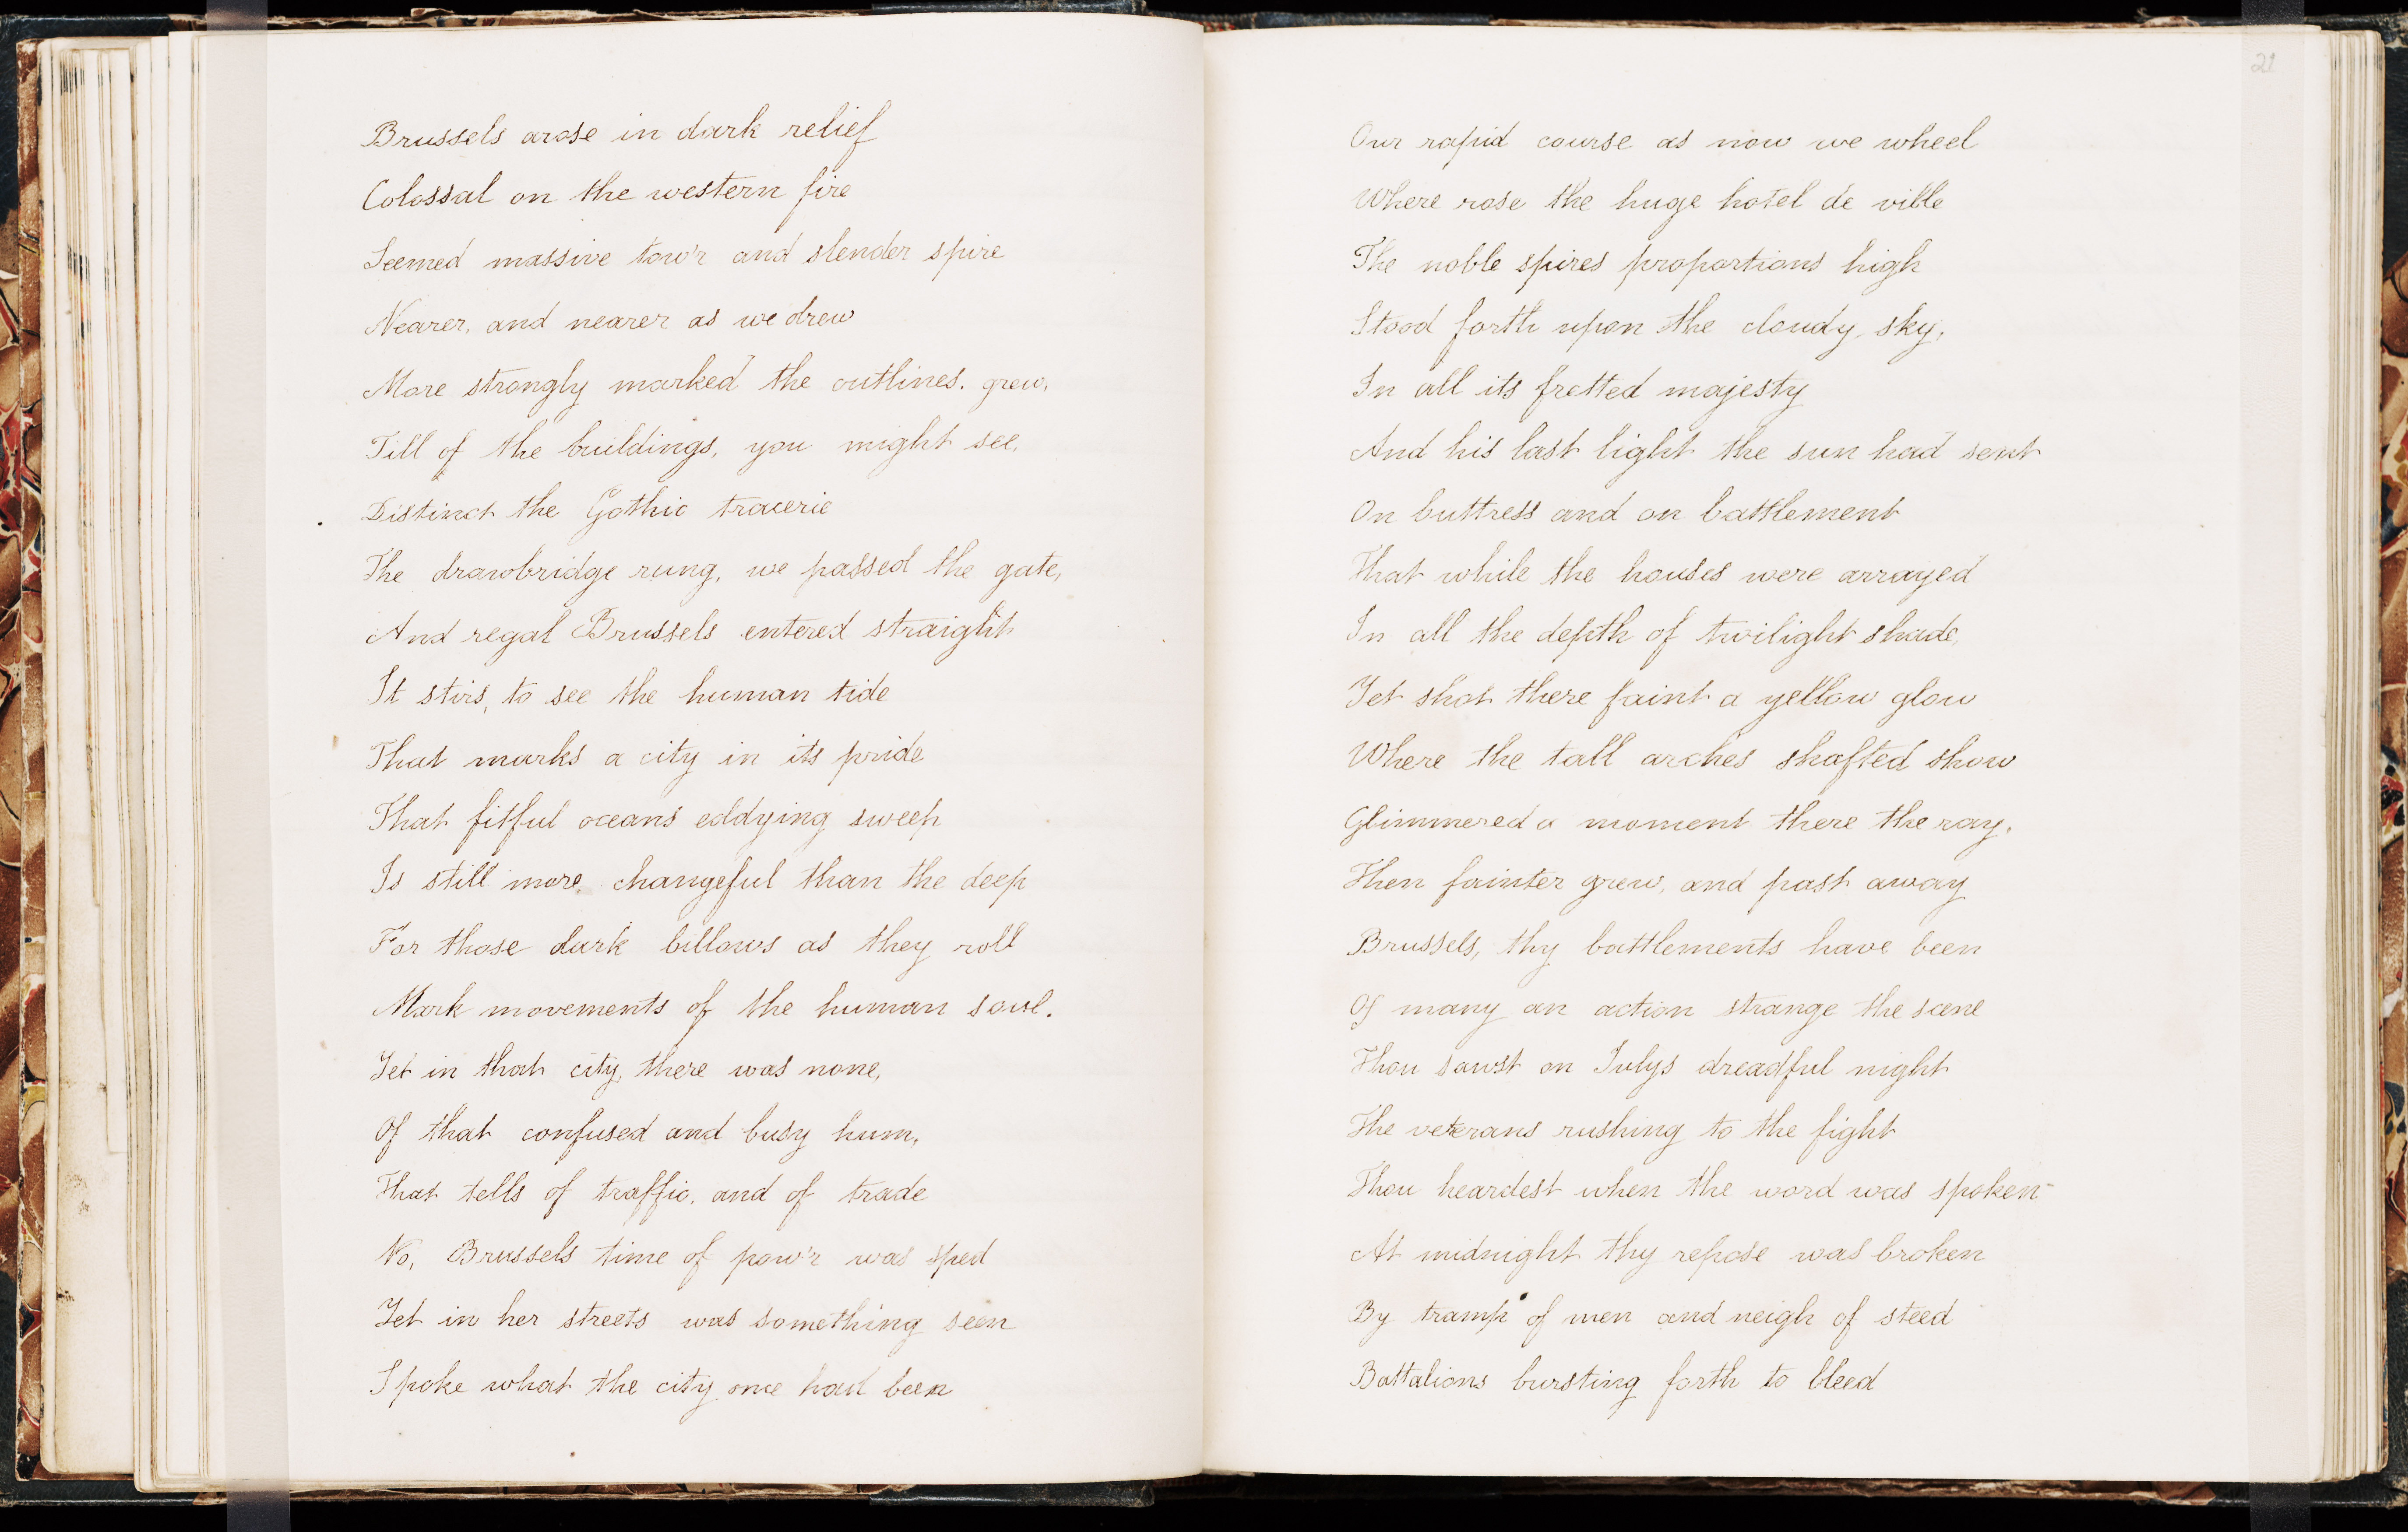 Brussels arose in dark relief
Colossal on the western fire
Seemed massive tow'r and slender spire
Nearer, and nearer as we drew
More strongly marked the outlines. grew,
Till of the buildings, you might see,
Distinct the Gothic tracerie
The drawbridge rung, we passed the gate,
And regal Brussels entered straight
It stirs, to see the human tide
That marks a city in its pride
That fitful oceans eddying sweep
Is still more changeful than the deep
For those dark billows as they roll
Mark movements of the human soul.
Yet in that city, there was none,
Of that confused and busy hum,
That tells of traffic, and of trade
No, Brussels time of pow'r was sped
Yet in her streets was something seen
Spoke what the city once had been
21
Our rapid course as now we wheel
Where rose the huge hotel de ville
The noble spires proportions high
Stood forth upon the cloudy sky,
In all its fretted majesty
And his last light the sun had sent
On buttress and on battlement
That while the houses were arrayed
In all the depth of twilight shade,
Yet shot there faint a yellow glow
Where the tall arches shafted show
Glimmered a moment there the ray,
Then fainter grew, and past away
Brussels, thy battlements have been
Of many an action strange the scene
Thou sawst on Julys dreadful night
The veterans rushing to the fight
Thou heardest when the word was spoken
At midnight thy repose was broken
By tramp of men and neigh of steed
Battalions bursting forth to bleed